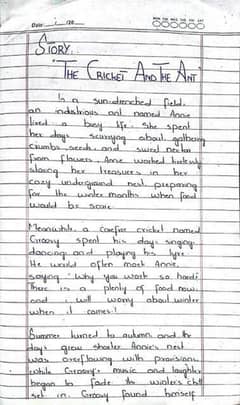 Date: 120
MON TUE WED THU FRI SAT
STORY
"THE CRICKET AND THE ANT"
In a sun-drenched field,
an industrious ant named Annie
lived a busy life. She spent
her days scurrying about gathering
crumbs, seeds and sweet nectar
from flowers. Annie worked tirelessly
storing her treasures in her
cozy underground nest, preparing
for the winter months when food
would be scarce.
Meanwhile a carefree cricket named
spent his days singing,
dancing and playing his lyre.
He would often meet Annie,
saying "Why you work so hard?
There is a plenty of food now,
and i will worry about winter
when it comes!
Summer turned to autumn, and the
days grew shorter. Annie's nest
was overflowing with provisions
while music and laughter
began to fade. As winter's chill
set in, found himself